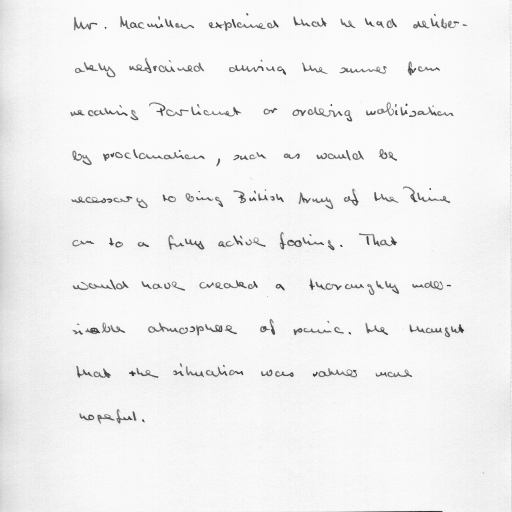 Mr. Macmillan explained that he had deliber-
ately refrained during the summer from
recalling Parliament or ordering mobilisation
by proclamation, such as would be
necessary to bring British Army of the Rhine
on to a fully active footing. That
would have created a thoroughly unde-
sirable atmosphere of panic. He thought
that the situation was rather more
hopeful.